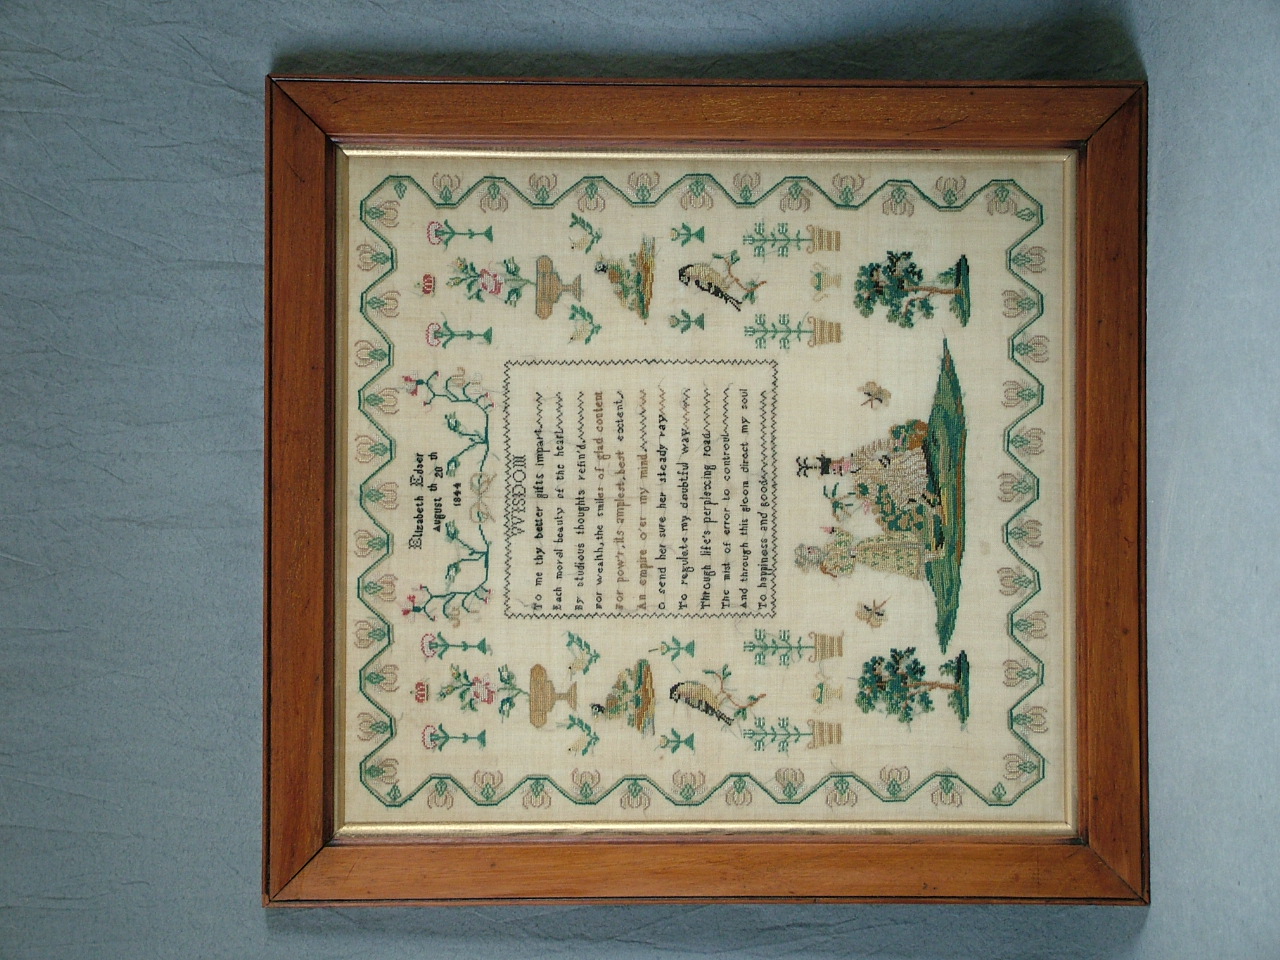 Elizabeth Edser
August th 20 th
1844
WISDOM
To me thy better gifts impart
Each moral beauty of the heart
By studious thoughts refin'd
For wealth, the smiles of glad content
For pow'r, its amplest, best extent
An empire o'er my mind
O send her sure her steady ray
To regulate my doubtful way
Through life's perplexing road
The mist of error to controul
And through this gloom direct my soul
To happiness and good